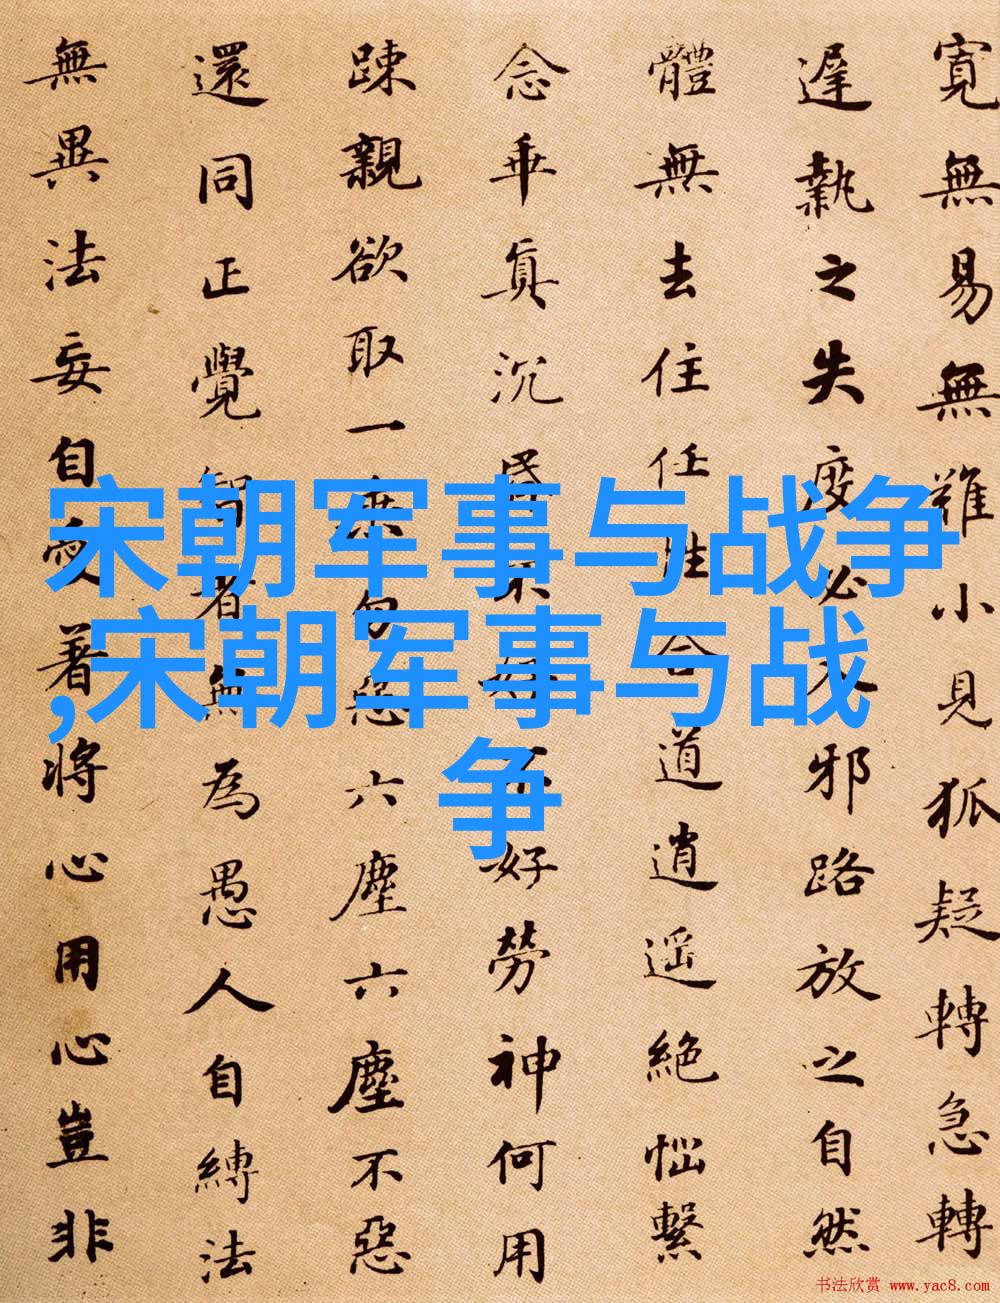 宋朝军事与战争
,宋朝军事与战
争
寬無易無難小見狐疑轉急轉
遲執之失度必入邪路放之自然
體無去住任性合道逍遥絶惱繫
念乖真沉昏不好不好勞神何用
踈親欲取一乘勿惡六塵六塵不惡
還同正覺智者無為愚人自縛法
無異法妄自愛著將心用心豈非
书法欣赏 www.yac8.com